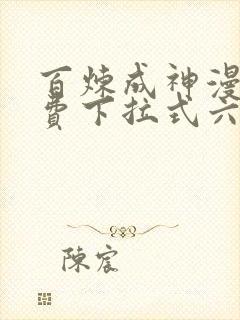 百炼成神漫
费下拉式六
陈宸